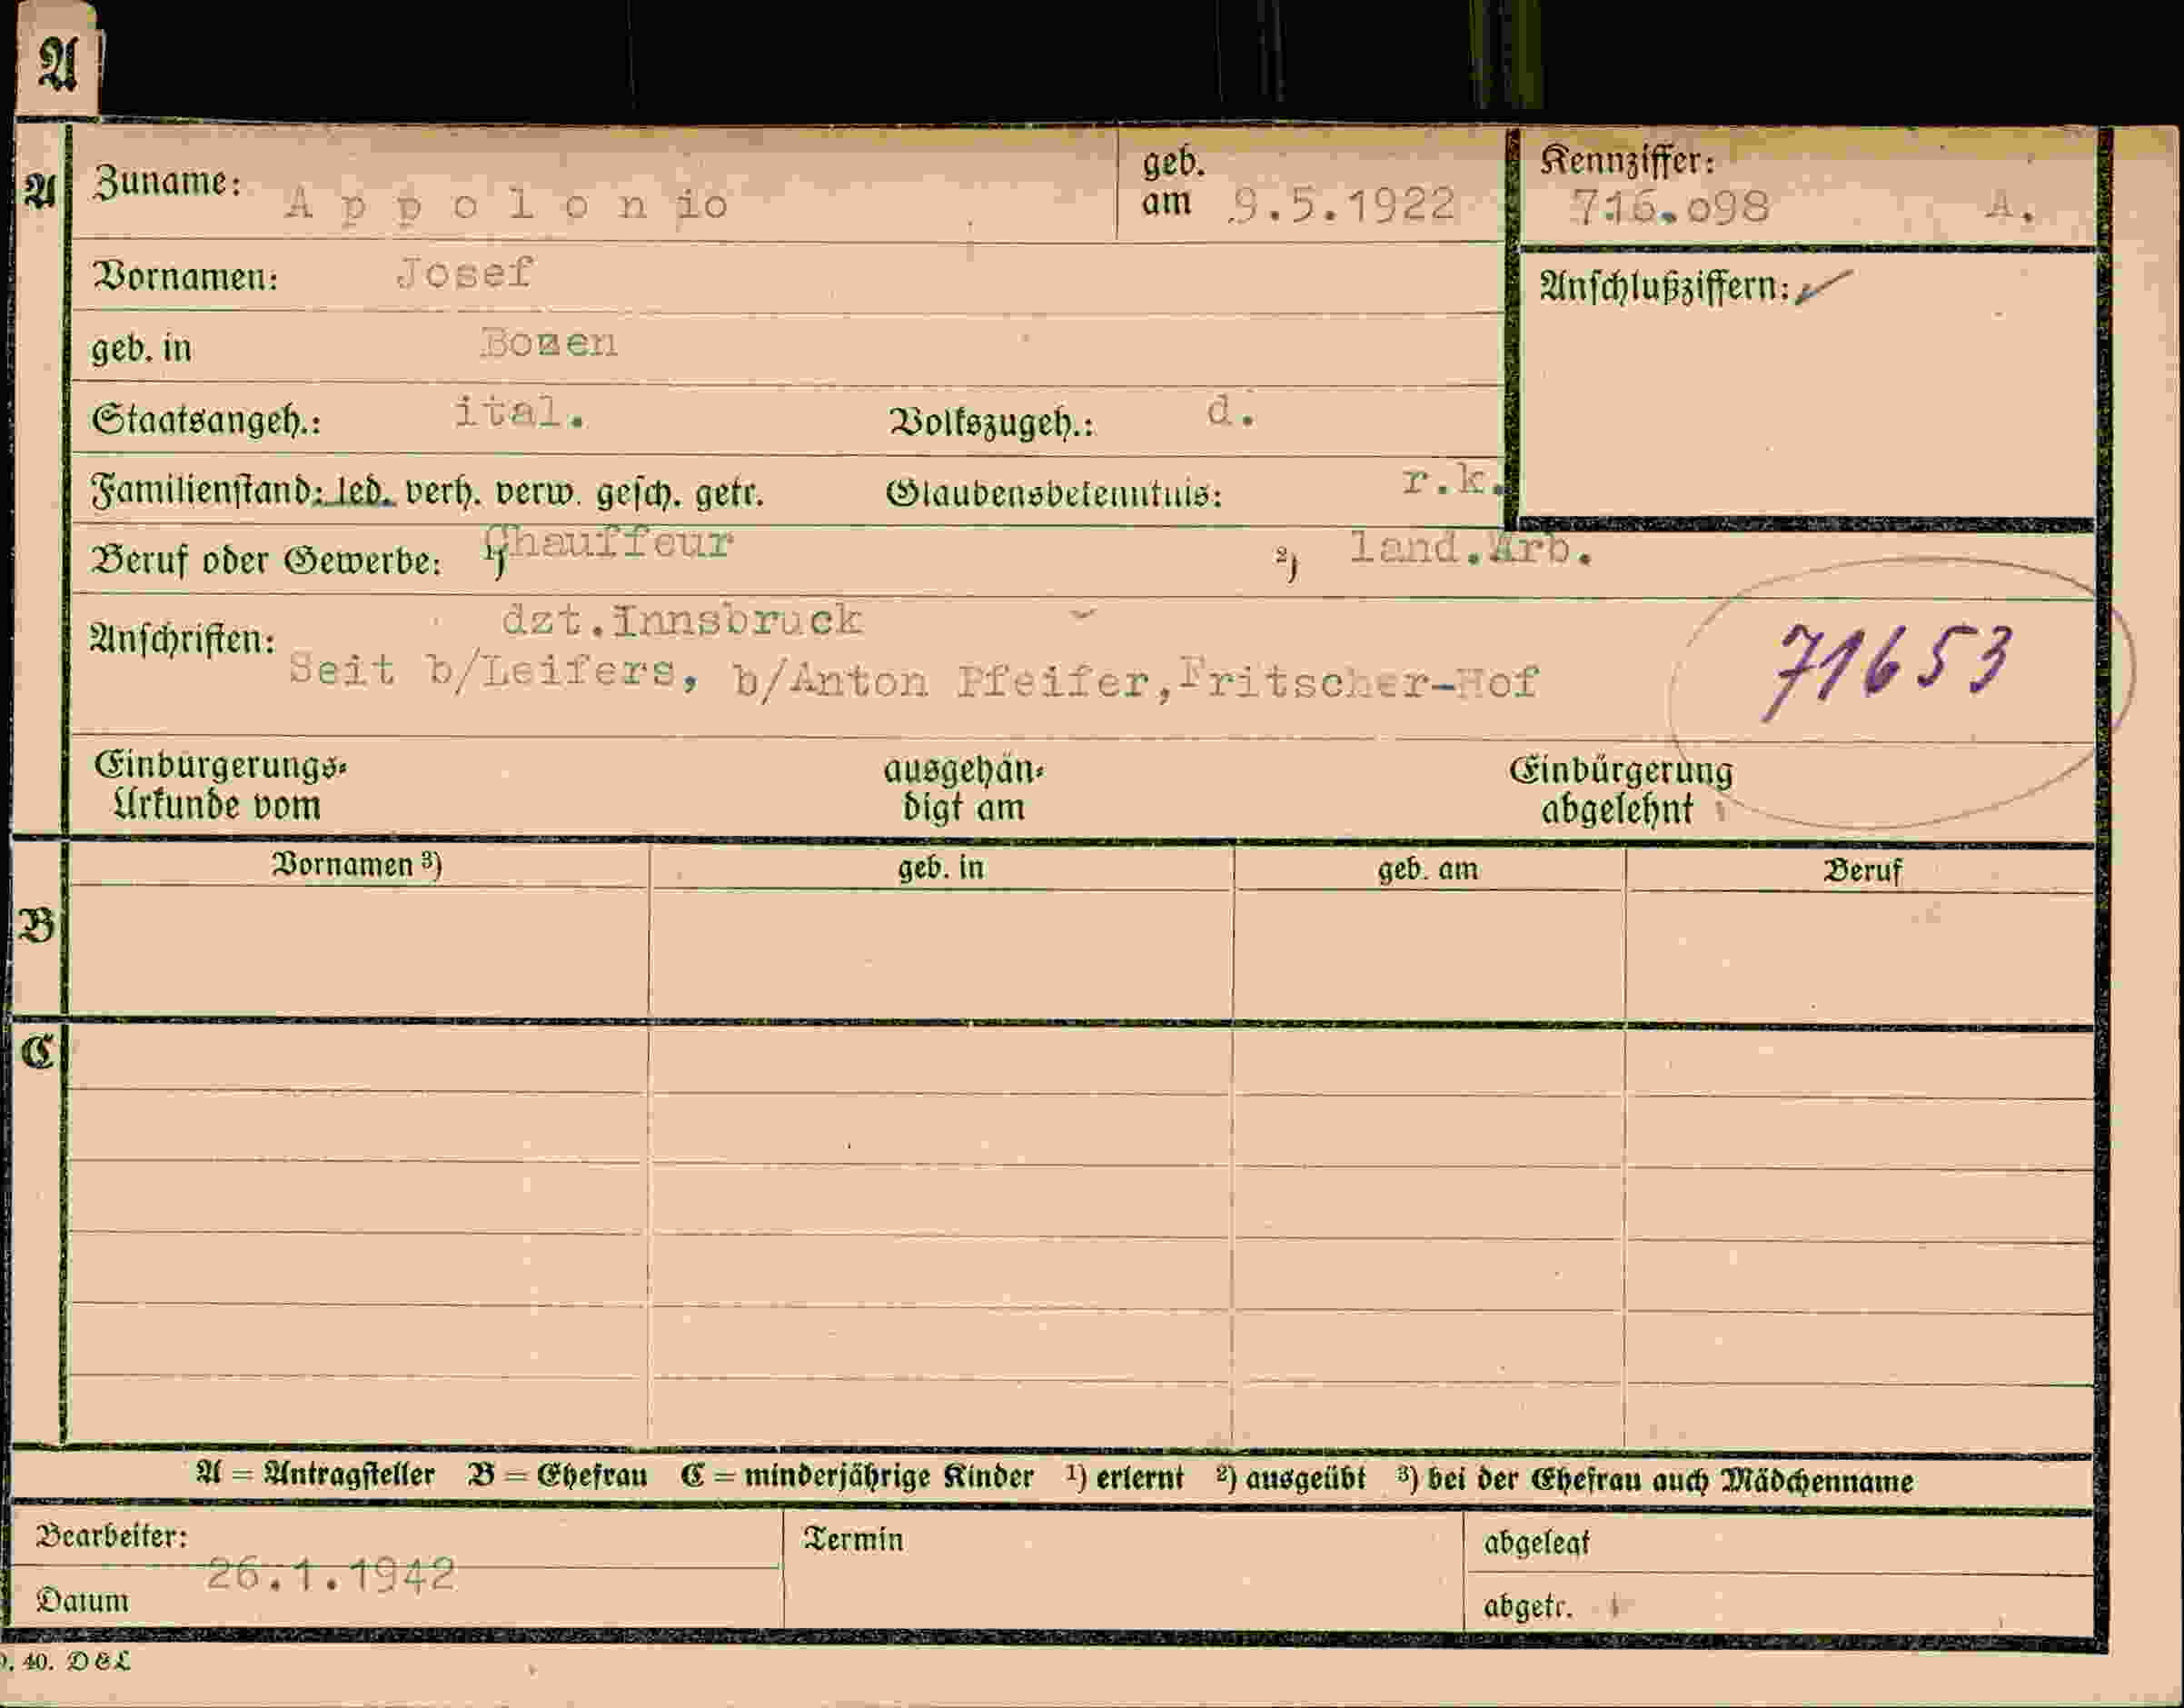 A
A Zuname: Appolonio geb. am 9.5.1922 Kennziffer: 716.o98 A.
Vornamen: Josef Anschlußziffern:
geb. in Bozen
Staatsangeh.: ital. Volkszugeh.: d.
Familienstand: led. verh. verw. gesch. getr. Glaubensbekenntnis: r.k.
Beruf oder Gewerbe: 1) Chauffeur 2) land.Arb.
Anschriften: dzt.Innsbruck
Seit b/Leifers, b/Anton Pfeifer,Fritscher-Hof
71653
Einbürgerungs- ausgehän- Einbürgerung
Urkunde vom digt am abgelehnt
Vornamen 3) geb. in geb. am Beruf
B
C
A = Antragsteller B = Ehefrau C = minderjährige Kinder 1) erlernt 2) ausgeübt 3) bei der Ehefrau auch Mädchenname
Bearbeiter: Termin abgelegt
26.1.1942
Datum abgetr.
40. D&L